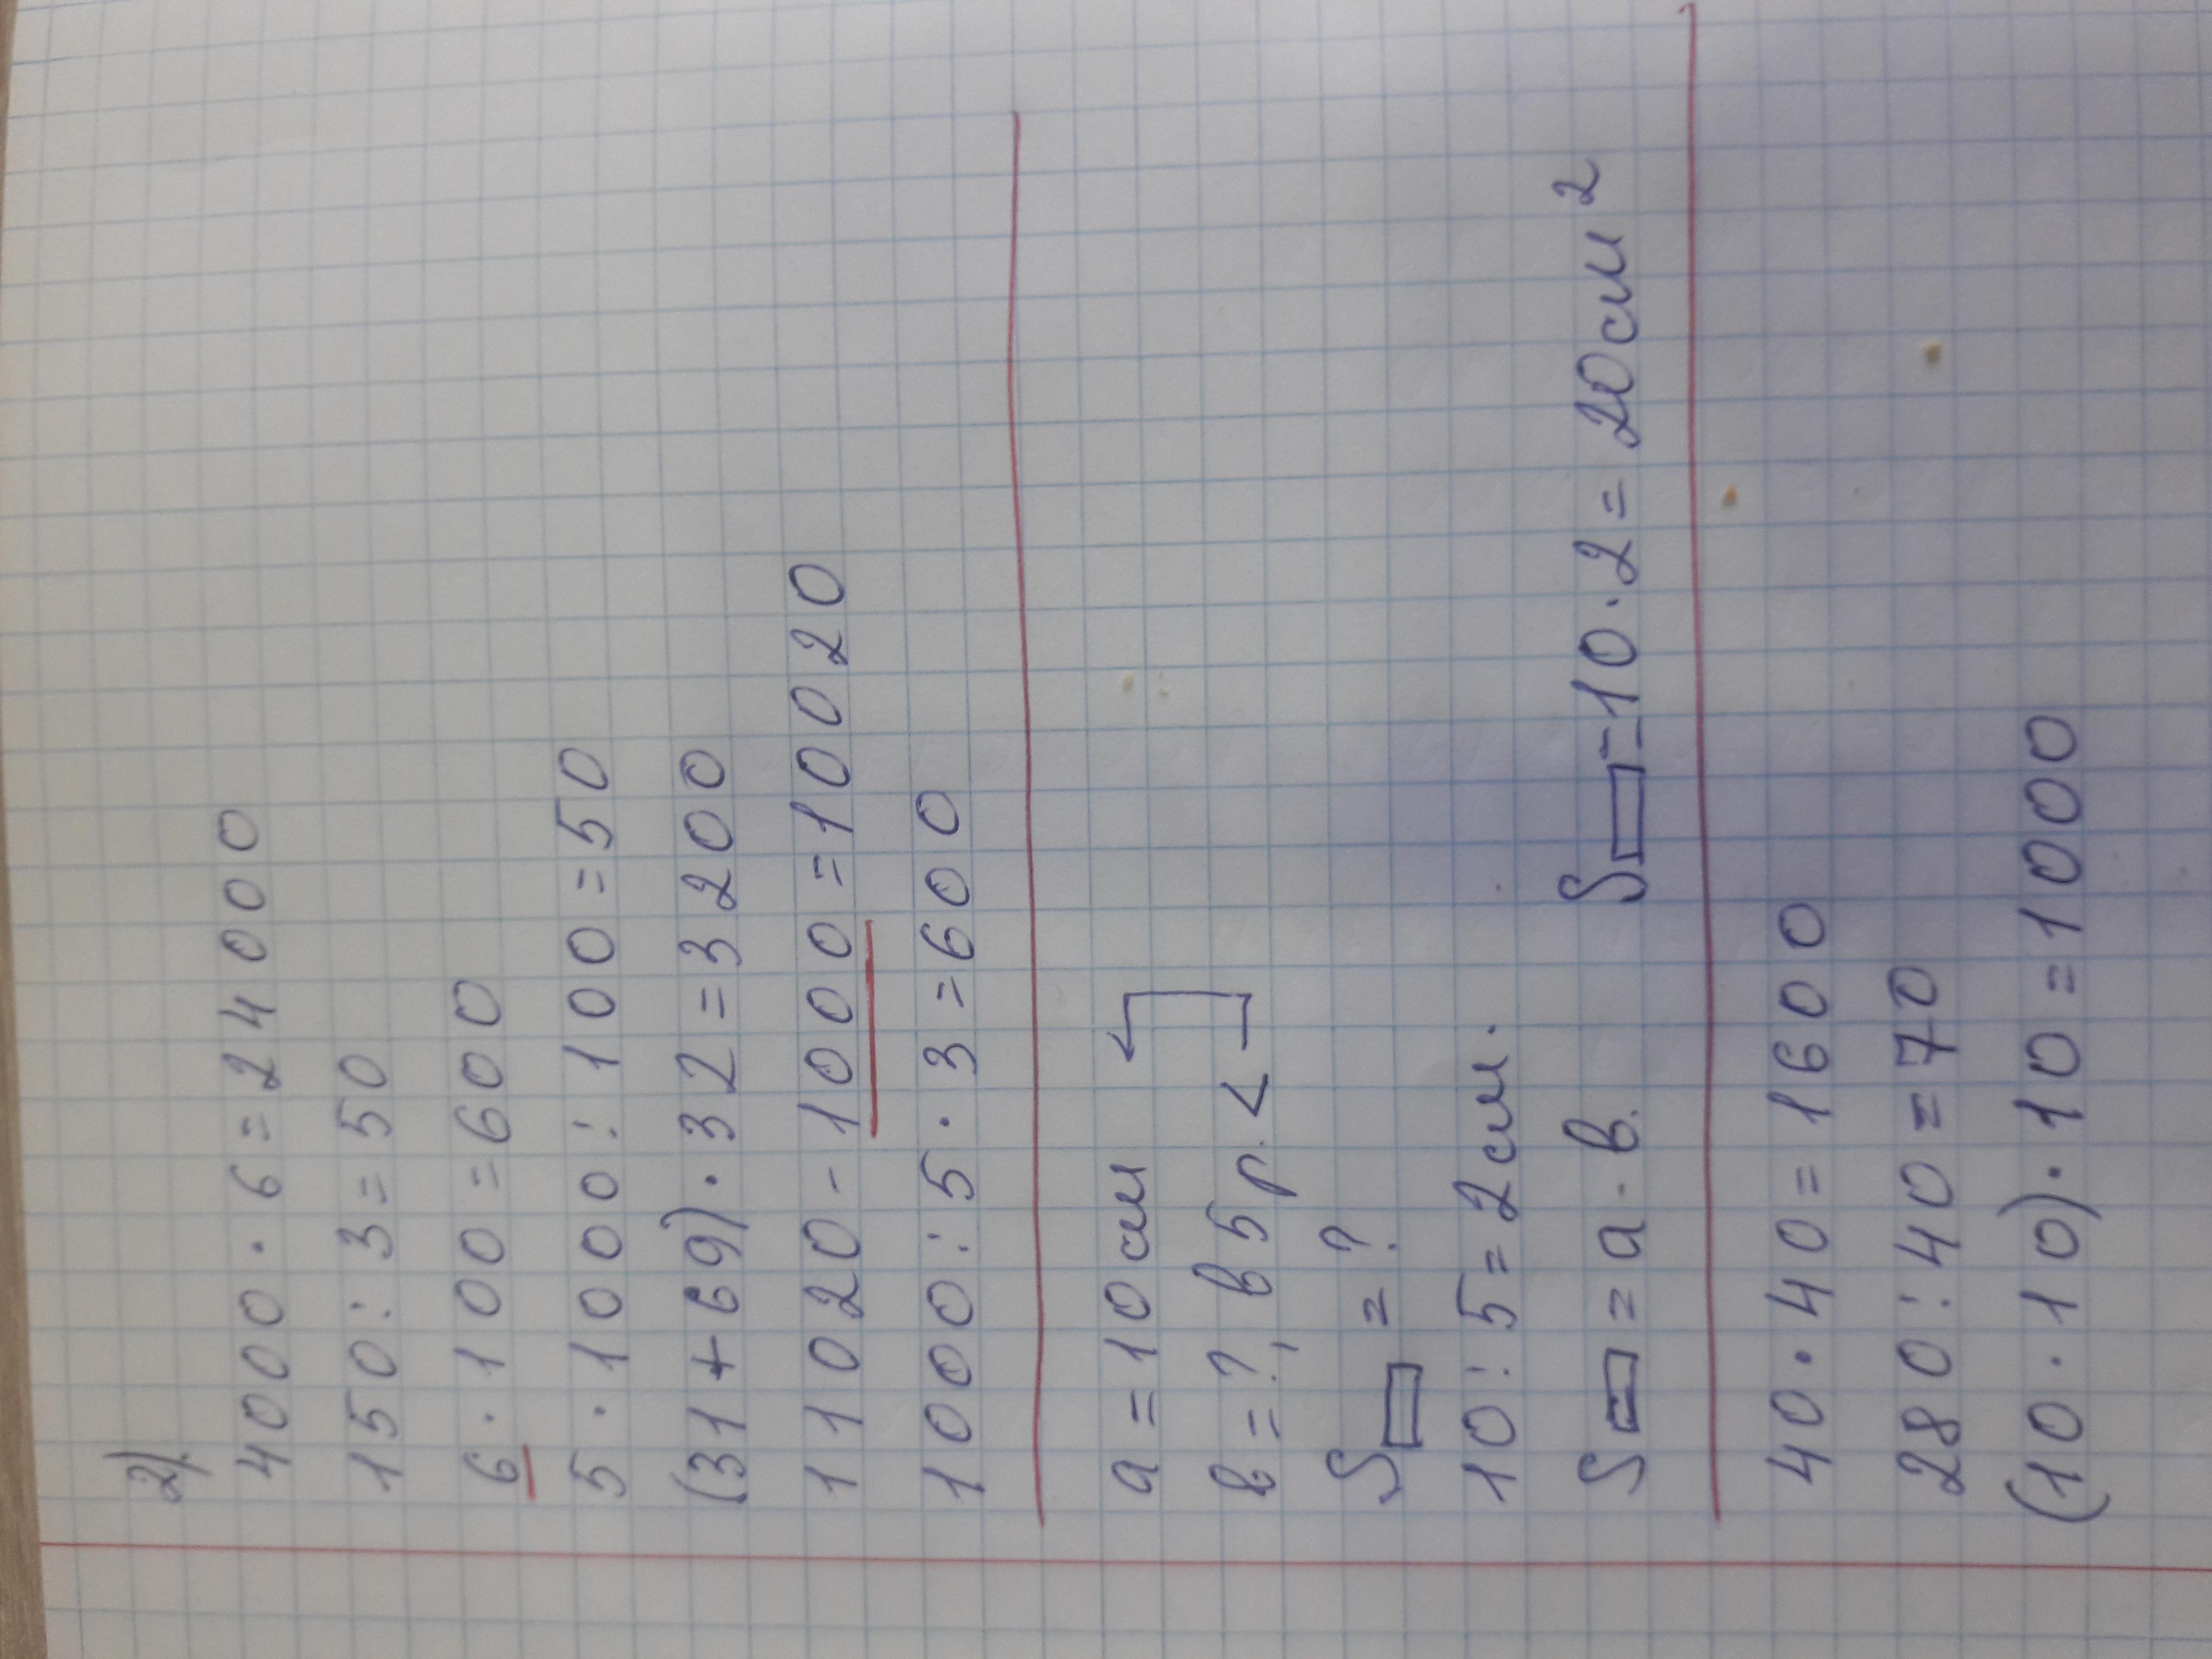 2).
4000 · 6 = 24000
150 : 3 = 50
6 · 100 = 600
5 · 1000 : 100 = 50
(31 + 69) · 32 = 3200
11020 - 1000 = 10020
1000 : 5 · 3 = 600
a = 10 см
в = ?, в 5 р. <
S▭ = ?
10 : 5 = 2 см.
S▭ = а · в. S▭ = 10 · 2 = 20 см²
40 · 40 = 1600
280 : 40 = 70
(10 · 10) · 10 = 1000